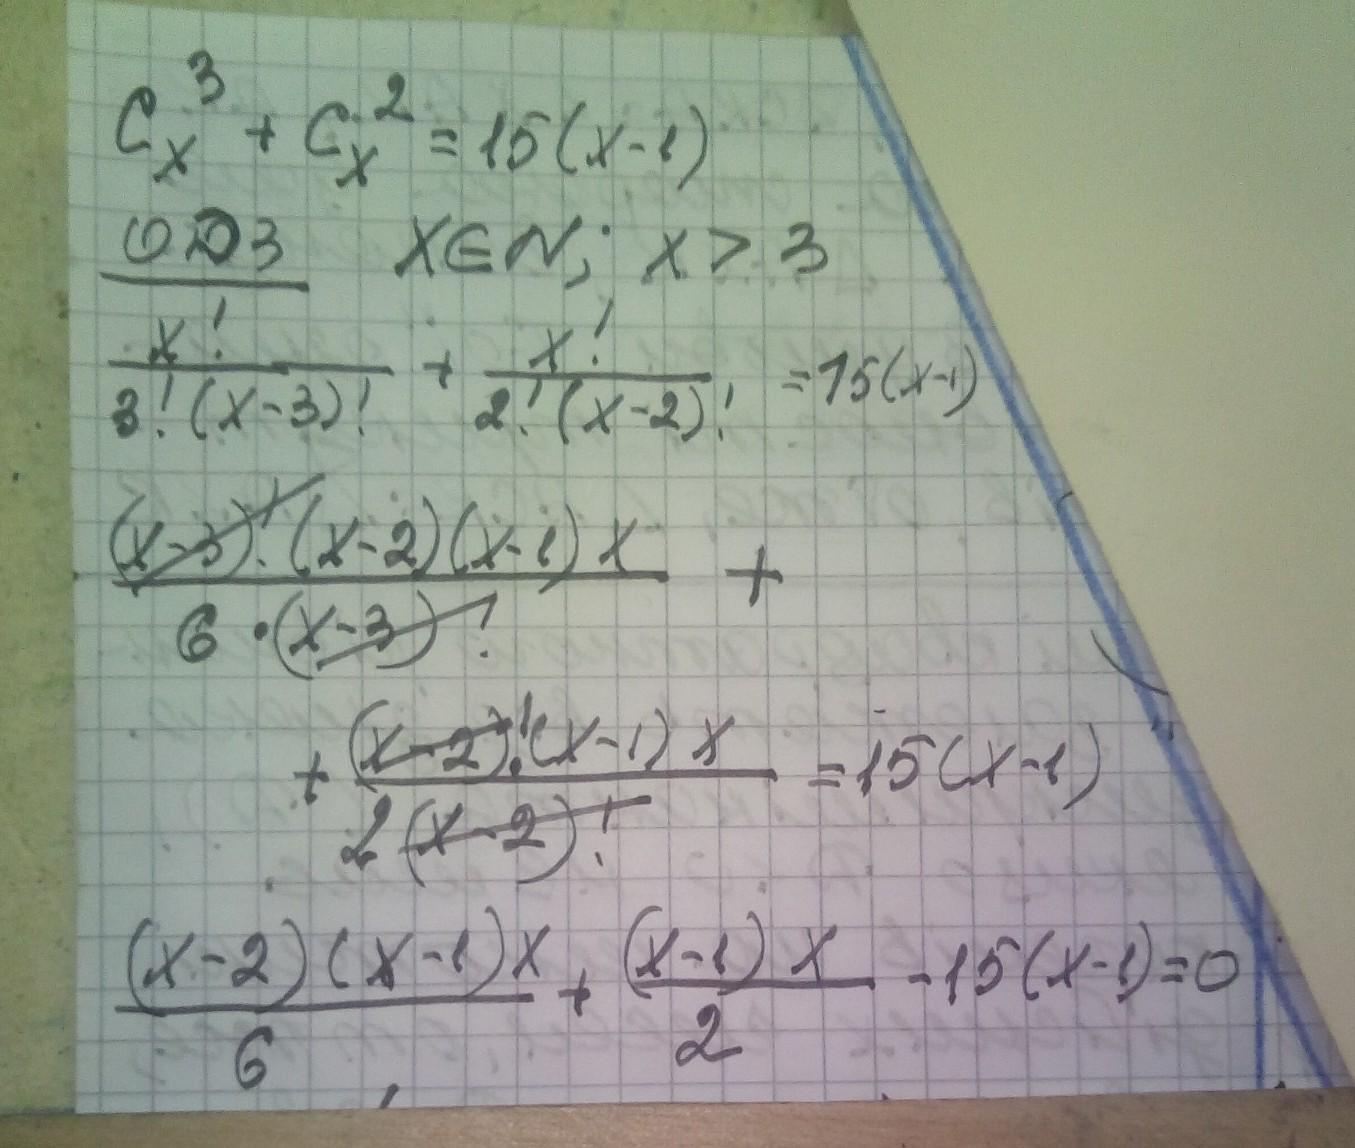 C_x^3 + C_x^2 = 15(x-1)
ОДЗ x∈N; x > 3
x!/(3!(x-3)!) + x!/(2!(x-2)!) = 15(x-1)
((x-3)!(x-2)(x-1)x)/(6·(x-3)!) +
+ ((x-2)!(x-1)x)/(2(x-2)!) = 15(x-1)
((x-2)(x-1)x)/6 + ((x-1)x)/2 - 15(x-1) = 0